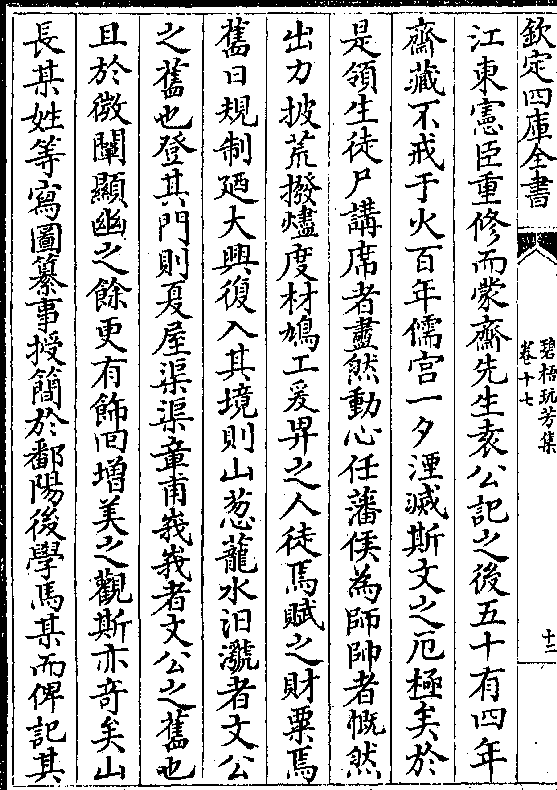 欽定四庫全書
碧梧玩芳集
卷十七
十二
江東憲臣重修而蒙齋先生袁公記之後五十有四年
齋藏不戒于火百年儒宫一夕湮滅斯文之厄極矣於
是領生徒尸講席者盡然動心任藩侯為師帥者慨然
出力披荒撥燼度材鳩工爰畀之人徒焉賦之財粟焉
舊日規制廼大興復入其境則山葱蘢水汨㶁者文公
之舊也登其門則夏屋渠渠章甫峩峩者文公之舊也
且於微闡顯幽之餘更有飾回增美之觀斯亦竒矣山
長某姓等寫圖纂事授簡於鄱陽後學馬某而俾記其